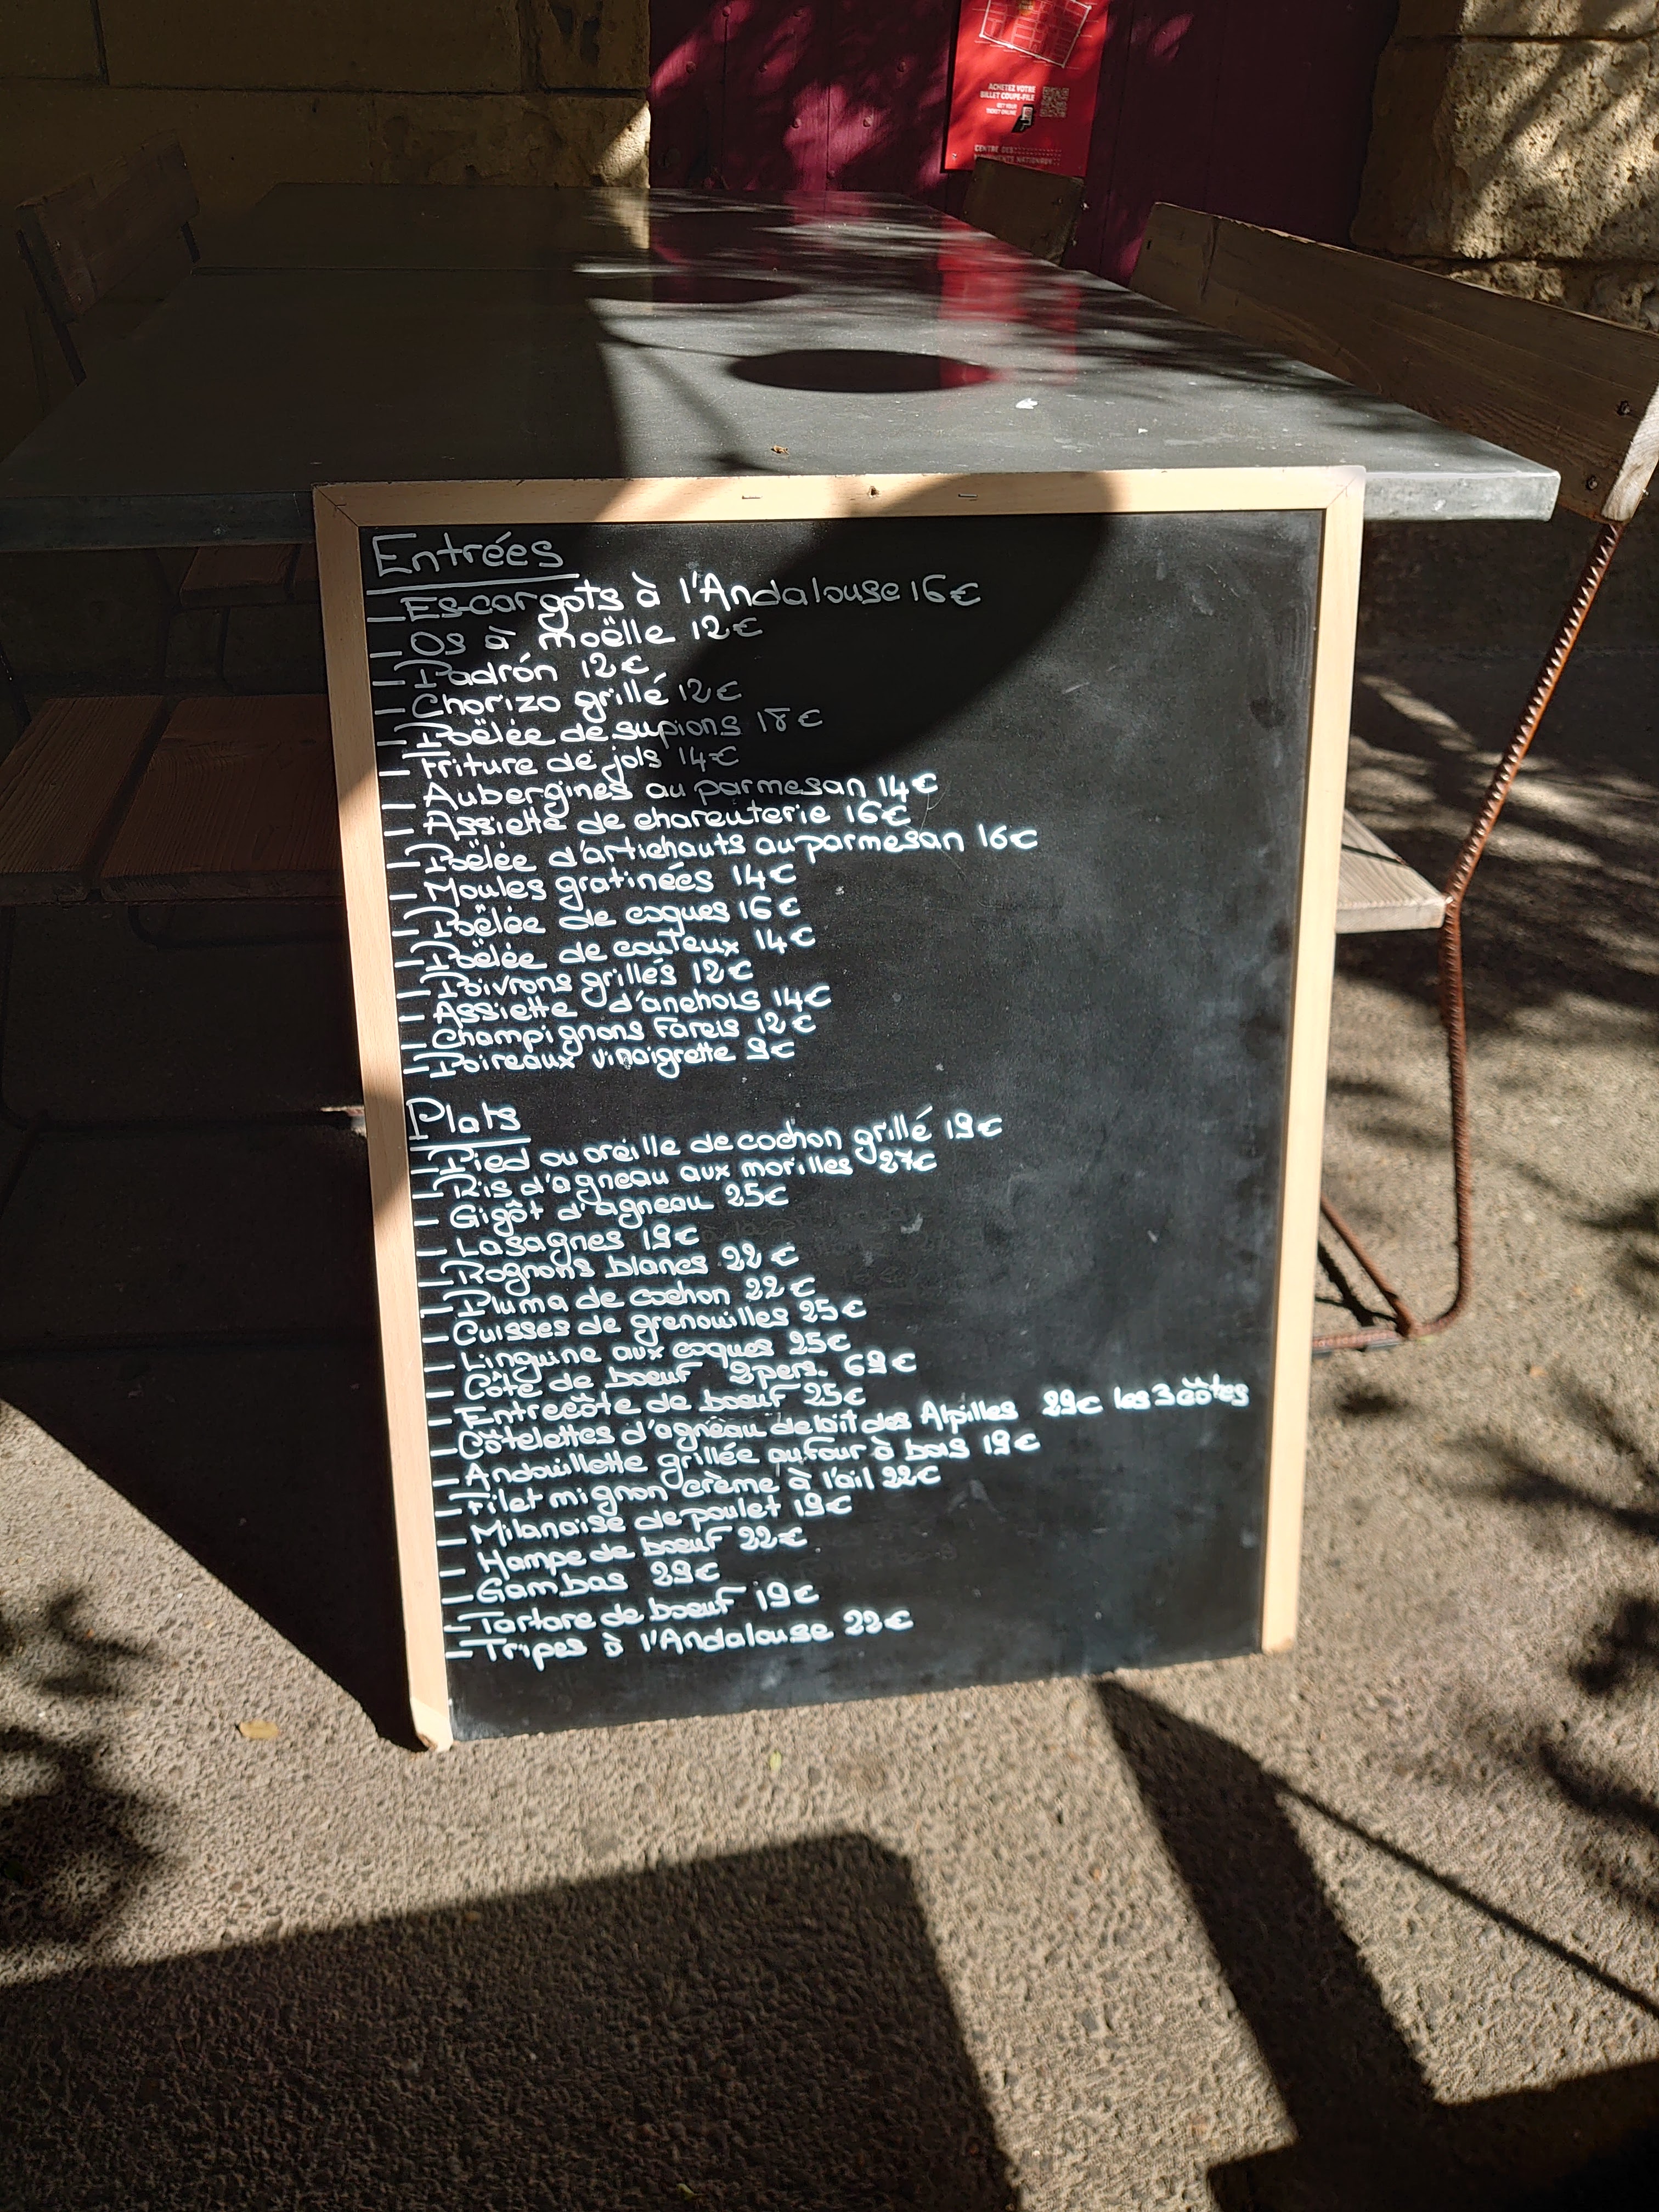 ACHETEZ VOTRE
BILLET COUPE-FILE
GET YOUR
TICKET ONLINE
CENTRE DES
MONUMENTS NATIONAUX
Entrées
- Escargots à l'Andalouse 16€
- Os à moëlle 12€
- Padrón 12€
- Chorizo grillé 12€
- Poëlée de supions 18€
- Friture de jols 14€
- Aubergines au parmesan 14€
- Assiette de charcuterie 16€
- Poëlée d'artichauts au parmesan 16€
- Moules gratinées 14€
- Poëlée de coques 16€
- Poëlée de couteux 14€
- Poivrons grillés 12€
- Assiette d'anchois 14€
- Champignons Farcis 12€
- Poireaux vinaigrette 9€
Plats
- Pied ou oreille de cochon grillé 19€
- Ris d'agneau aux morilles 27€
- Gigôt d'agneau 25€
- Lasagnes 19€
- Rognons blancs 22€
- Pluma de cochon 22€
- Cuisses de grenouilles 25€
- Linguine aux coques 25€
- Côte de boeuf 2pers. 69€
- Entrecôte de boeuf 25€
- Côtelettes d'agneau de lait des Alpilles 29€ les 3 côtes
- Andouillette grillée au four à bois 19€
- Filet mignon crème à l'ail 22€
- Milanaise de poulet 19€
- Hampe de boeuf 22€
- Gambas 29€
- Tartare de boeuf 19€
- Tripes à l'Andalouse 22€